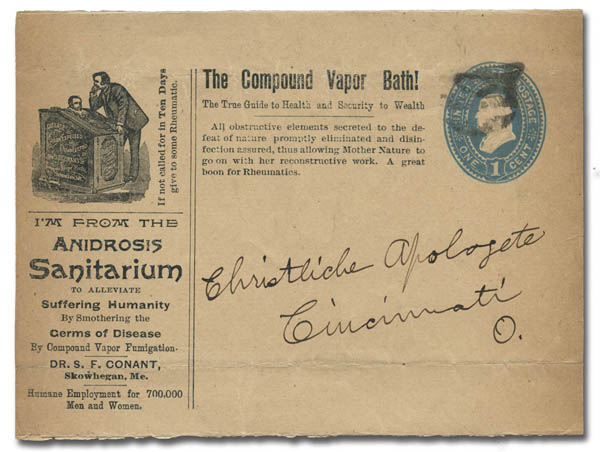 If not called for in Ten Days
give to some Rheumatic.
I'M FROM THE
ANIDROSIS
Sanitarium
TO ALLEVIATE
Suffering Humanity
By Smothering the
Germs of Disease
By Compound Vapor Fumigation.
DR. S. F. CONANT,
Skowhegan, Me.
Humane Employment for 700,000
Men and Women.
The Compound Vapor Bath!
The True Guide to Health and Security to Wealth
All obstructive elements secreted to the de-
feat of nature promptly eliminated and disin-
fection assured, thus allowing Mother Nature to
go on with her reconstructive work. A great
boon for Rheumatics.
POSTAGE
ONE 1 CENT
Christliche Apologete
Cincinnati
O.